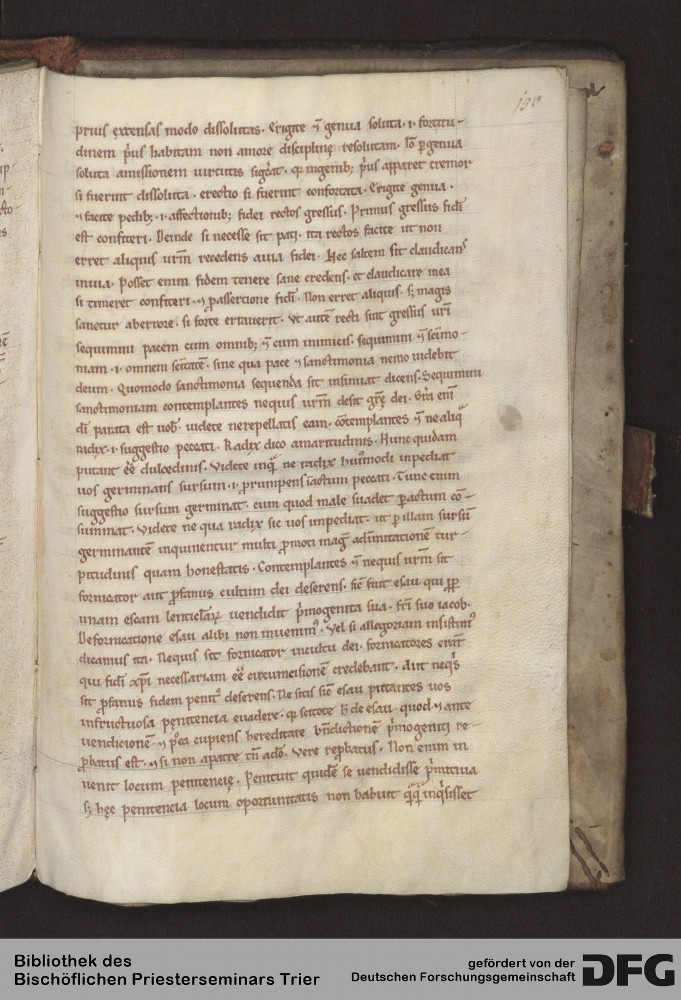 190
prius extensas modo dissolutas. Erigite ⁊ genua soluta .i. fortitu-
dinem p̄us habitam non amore disciplinę resolutam. Iō p̱ genua
soluta amissionem uirtutis sigͣt. q̱ ingenib; p̄us apparet tremor
si fuerint dissoluta. erectio si fuerint confortata. Erigite genua.
⁊ facite pedib; .i. affectionib; fidei rectos gressus. Primus gressus fidī
est confiteri. Deinde si necesse sit pati. ita rectos facite ut non
erret aliquis urm̄ recedens auia fidei. Hec saltem sit claudicans
inuia. Posset enim fidem tenere sane credens. et claudicare inea
si timeret confiteri. ⁊ p̱assertione fidī. Non erret aliquis. s; magis
sanetur aberrore. si forte errauerit. Vt autē recti sint gressus urī
sequimini pacem cum omnib; ⁊̄ cum inimicis. sequimini ⁊̄ scīmo-
niam .i. omnem scītatē. sine qua pace ⁊ sanctimonia nemo uidebit
deum. Quomodo sanctimonia sequenda sit insinuat dicens. Sequimini
sanctimoniam contemplantes nequis urm̄ desit grę̄ dei. Grā enī
dī parata est uob̄. uidete nerepellatis eam. cōtemplantes ⁊̄ ne aliq̄
radix .i. suggestio peccati. Radix dico amaritudinis. Hunc quidam
putant eē̄ dulcedinis. Videte inq̄ ne radix hui᷒modi inpediat
uos germinans sursum .i. prumpens īactum peccati. Tunc enim
suggestio sursum germinat. cum quod male suadet p̱actum co-
summat. Videte ne qua radix sic uos impediat. ut p̱ illam sursū
germinantē inquinentur multi p̱moti maḡ ad imitationē tur-
pitudinis quam honestatis. Contemplantes ⁊̄ nequis urm̄ sit
fornicator aut p̱fanus cultum dei deserens. sic̄ fuit esau qui pp̱
unam escam lenticularū uendidit p̄mogenita sua. frī suo iacob.
De fornicatione esau alibi non inuenim᷒. Vel si allegoriam insistim᷒
dicamus ita. Nequis sit fornicator incultu dei. fornicatores erāt
qui fidī xp̄i necessariam eē̄ circumcisionē credebant. Aut neq̄s
sit p̱fanus fidem penit᷒ deserens. Ne sitis sic̄ esau putantes uos
infructuosa pęnitencia euadere. q̱ scitote h̄ de esau. quod ⁊ ante
uendicionē. ⁊ p᷒ea cupiens hereditare bn̄dictionē p̄mogeniti re-
p̱batus est. ⁊ si non apatre tn̄ ad̄o. Vere rep̱batus. Non enim in
uenit locum penitencię. Penituit quidē se uendidisse p̄mitiua
s; hęc penitencia locum oportunitatis non habuit q̄q̄ inq̄sisset
Bibliothek des
Bischöflichen Priesterseminars Trier
gefördert von der
Deutschen Forschungsgemeinschaft
DFG